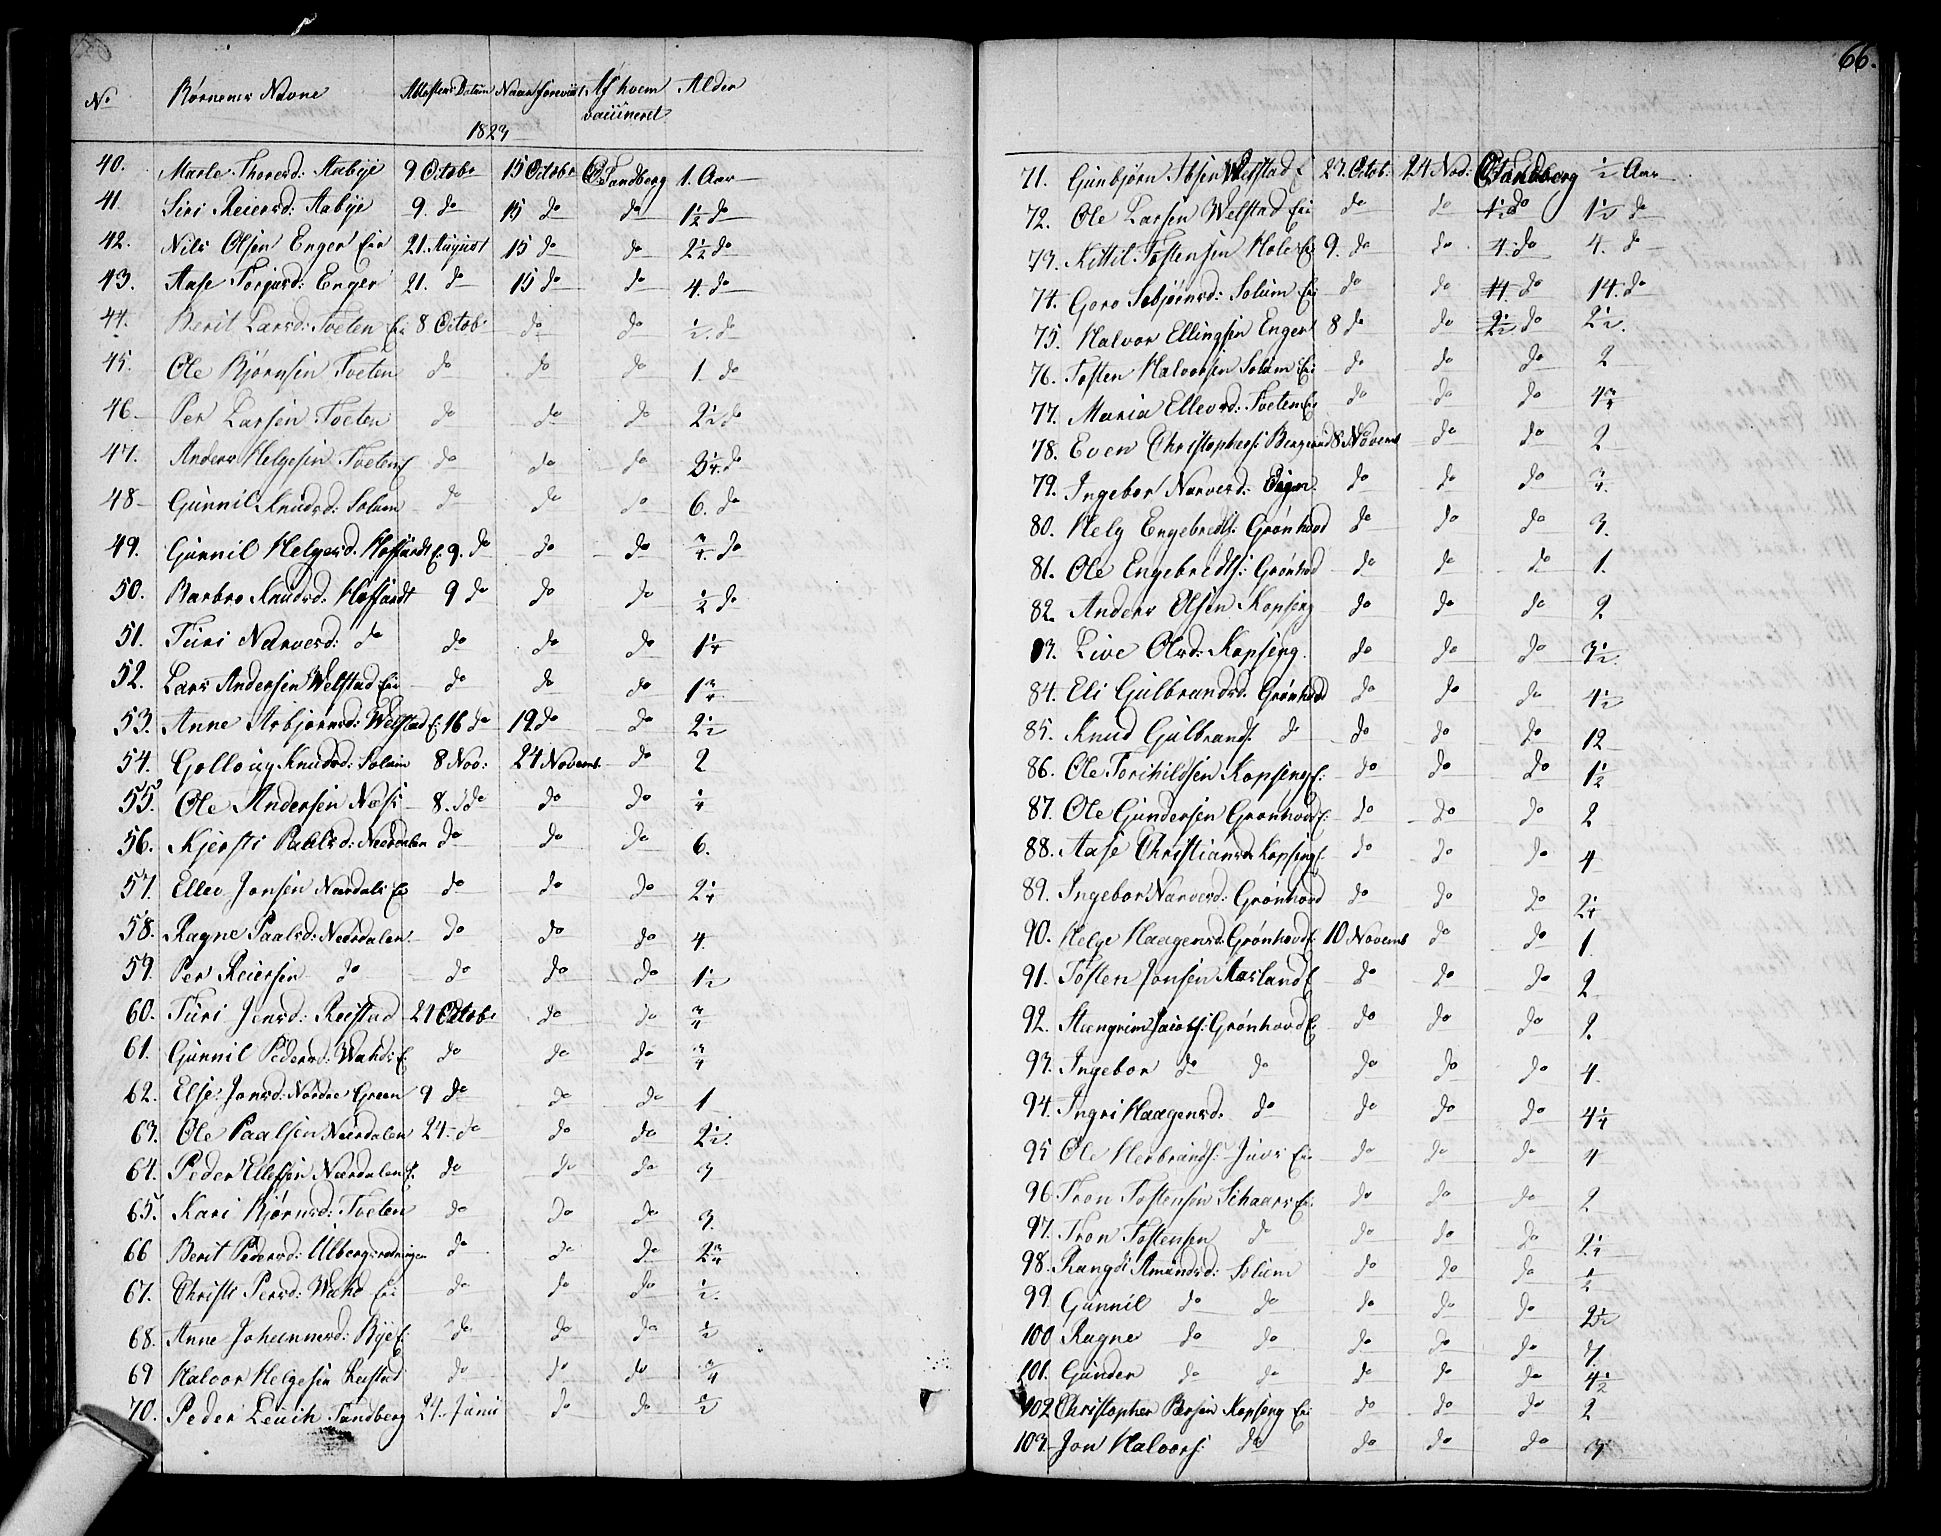 No Børnenes Navne Attestens Datum Naar foreviist Af hvem Alder
vaccineret
1823
40. Marte Thoresd: Aabye 9 Octobr 15 Octobr C. Sandberg 1. Aar
41. Siri Reiersd: Aabye 9. do 15 do do 1½ do
42. Nils Olsen Enger Eie 21. August 15 do do 2½ do
43. Aase Torgusd: Enger 21. do 15 do do 4. do
44. Berit Larsd: Tveten Ei: 8 Octob: do do ½. do
45. Ole Bjørnsen Tveten do do do 1. do
46. Per Larsen Tveten do do do 2½ do
47. Anders Helgesen Tveten E do do do 3¼. do
48 Gunnil Knudsd: Solum do do do 6. do
49. Gunnil Helgesd. Hoffardt E. 9. do do do ¾. do
50. Barbro Knudsd. Hoffardt 9 do do do ½ do
51. Turi Narvesd: do do do do 1¼
52. Lars Andersen Welstad Eie do do do 1¾
53. Anne Asbjørnsd: Welstad E: 16 do 19. do do 2½
54. Gollaug Knudsd: Solum 8 Nov: 24 Novemb. do 2
55. Ole Andersen Næss 8. do do do ¼
56. Kjersti Paalsd: Neerdalen do do do 6.
57. Ellev Jonsen Neerdals Ei do do do 2¼
58. Ragne Paalsd: Neerdalen do do do 4.
59. Per Reiersen do do do do 1½
60. Turi Jensd: Rustad 24 Octobr do do ¾
61. Gunnil Pedersd: Wahds E. do do do ¾
62. Else Jonsd: Nordre Green 9 do do do 1
63. Ole Paalsen Neerdalen 24. do do do 2½.
64. Peder Ellefsen Neerdalen E. do do do 3
65. Kari Bjørnsd: Tveten do do do 3.
66 Berit Pedersd: Ulbergsrødningen do do do 2¾
67. Christi Persd: Wahd Ei: do do do ½.
68. Anne Johannesd: Rye E: do do do ½
69 Halvor Helgesen Rustad do do do ¾
70. Peder Leuch Sandberg 24. Junii do do ½
66.
71. Gunbjørn Welstad E 27. Octob: 24 Nov: C. Sandberg ½ Aar
72. Ole Larsen Welstad Eie do do do 1½ do
73. Kittil Tostensen Hole Ei 9. do do 4. do 4. do
74. Goro Sebjørnsd: Solum Ei: do do do 14. do
75. Halvor Ellingsen Enger 8 do do 2½ do 2½.
76. Tosten Halvorsen Solum Ei: do do do 2
77. Maria Ellevsd: Tveten Ei do do do 4¾
78. Even Christophers: Bergerud 8 Novemb do do 2
79. Ingebor Narvesd: do do do ¾.
80. Helg Engebredts: Grønhovd do do do 3.
81. Ole Engebredts: Grønhod do do do 1.
82. Anders Olsen Kopseng do do do 2
83. Live Olsd: Kopseng. do do do 3½.
84. Eli Gulbrandsd: Grønhovd do do do 4½
85. Knud Gulbrands. do do do do 12
86. Ole Torchildsen Kopseng E: do do do 1½
87. Ole Gundersen Grønhovd E: do do do 2
88. Aase Christiansd: Kopseng E. do do do 4
89. Ingebor Narvesd: Grønhovd do do do 2¼
90. Helge Haagensd: Grønhovd E. 10 Novemb do do 1.
91. Tosten Jonsen Aasland E do do do 2
92. Steengrim Jacobs: Grønhovd E do do do 2.
93. Ingebor do do do do do 4.
94. Ingri Haagensd. do do do do 4¼
95 Ole Herbrands: Juvs Ei: do do do 4
96. Tron Tostensen Schaars Ei: do do do 2
97. Tron Tostensen do do do do 2¼
98. Rangdi Amundsd: Solum do do do ½
99 Gunnil do do do do do 2½
100. Ragne do do do do do 7.
101. Gunder do do do do do 4½
102 Christopher Persen Kopseng Ei: do do do 2
103. Jon Halvors: do do do do 3